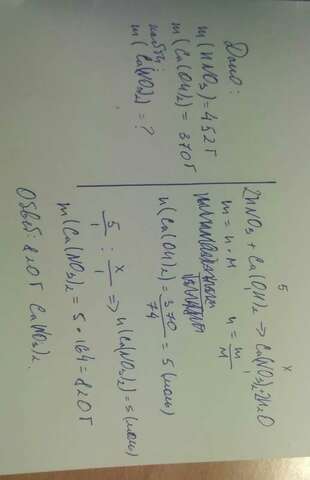 Дано:
m(HNO3) = 452г
m(Ca(OH)2) = 370г
m(Ca(NO3)2) = ?
5 x
2HNO3 + Ca(OH)2 => Ca(NO3)2+2H2O
m = n · M n = m/M
n(Ca(OH)2) = 370/74 = 5 (моль)
5/1 : x/1 => n(Ca(NO3)2) = 5 (моль)
m(Ca(NO3)2 = 5 · 164 = 820г
Ответ: 820г Ca(NO3)2.